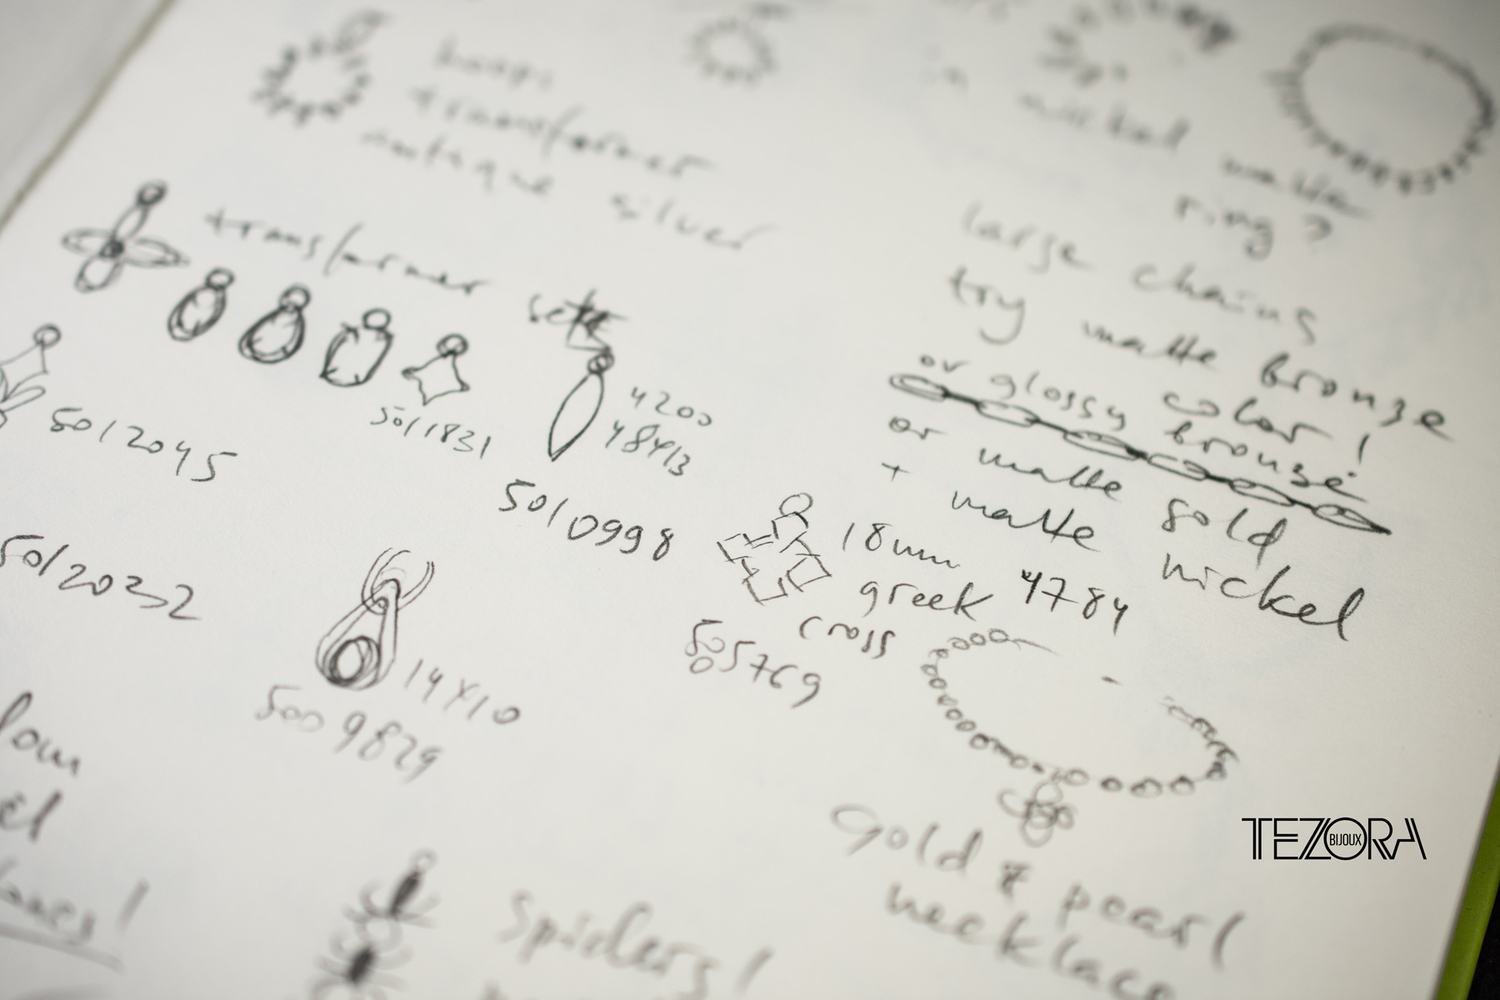 hoops
transformer
antique silver
in nickel matte
ring?
transformer sets
large chains
try matte bronze
color!
or glossy bronze
or matte gold
+ matte nickel
4200
48413
501831
5012045
5010998
5012032
18mm
greek
cross
4784
505769
14x10
5009829
Gold & pearl
necklace
Spiders!
TEZORA
BIJOUX